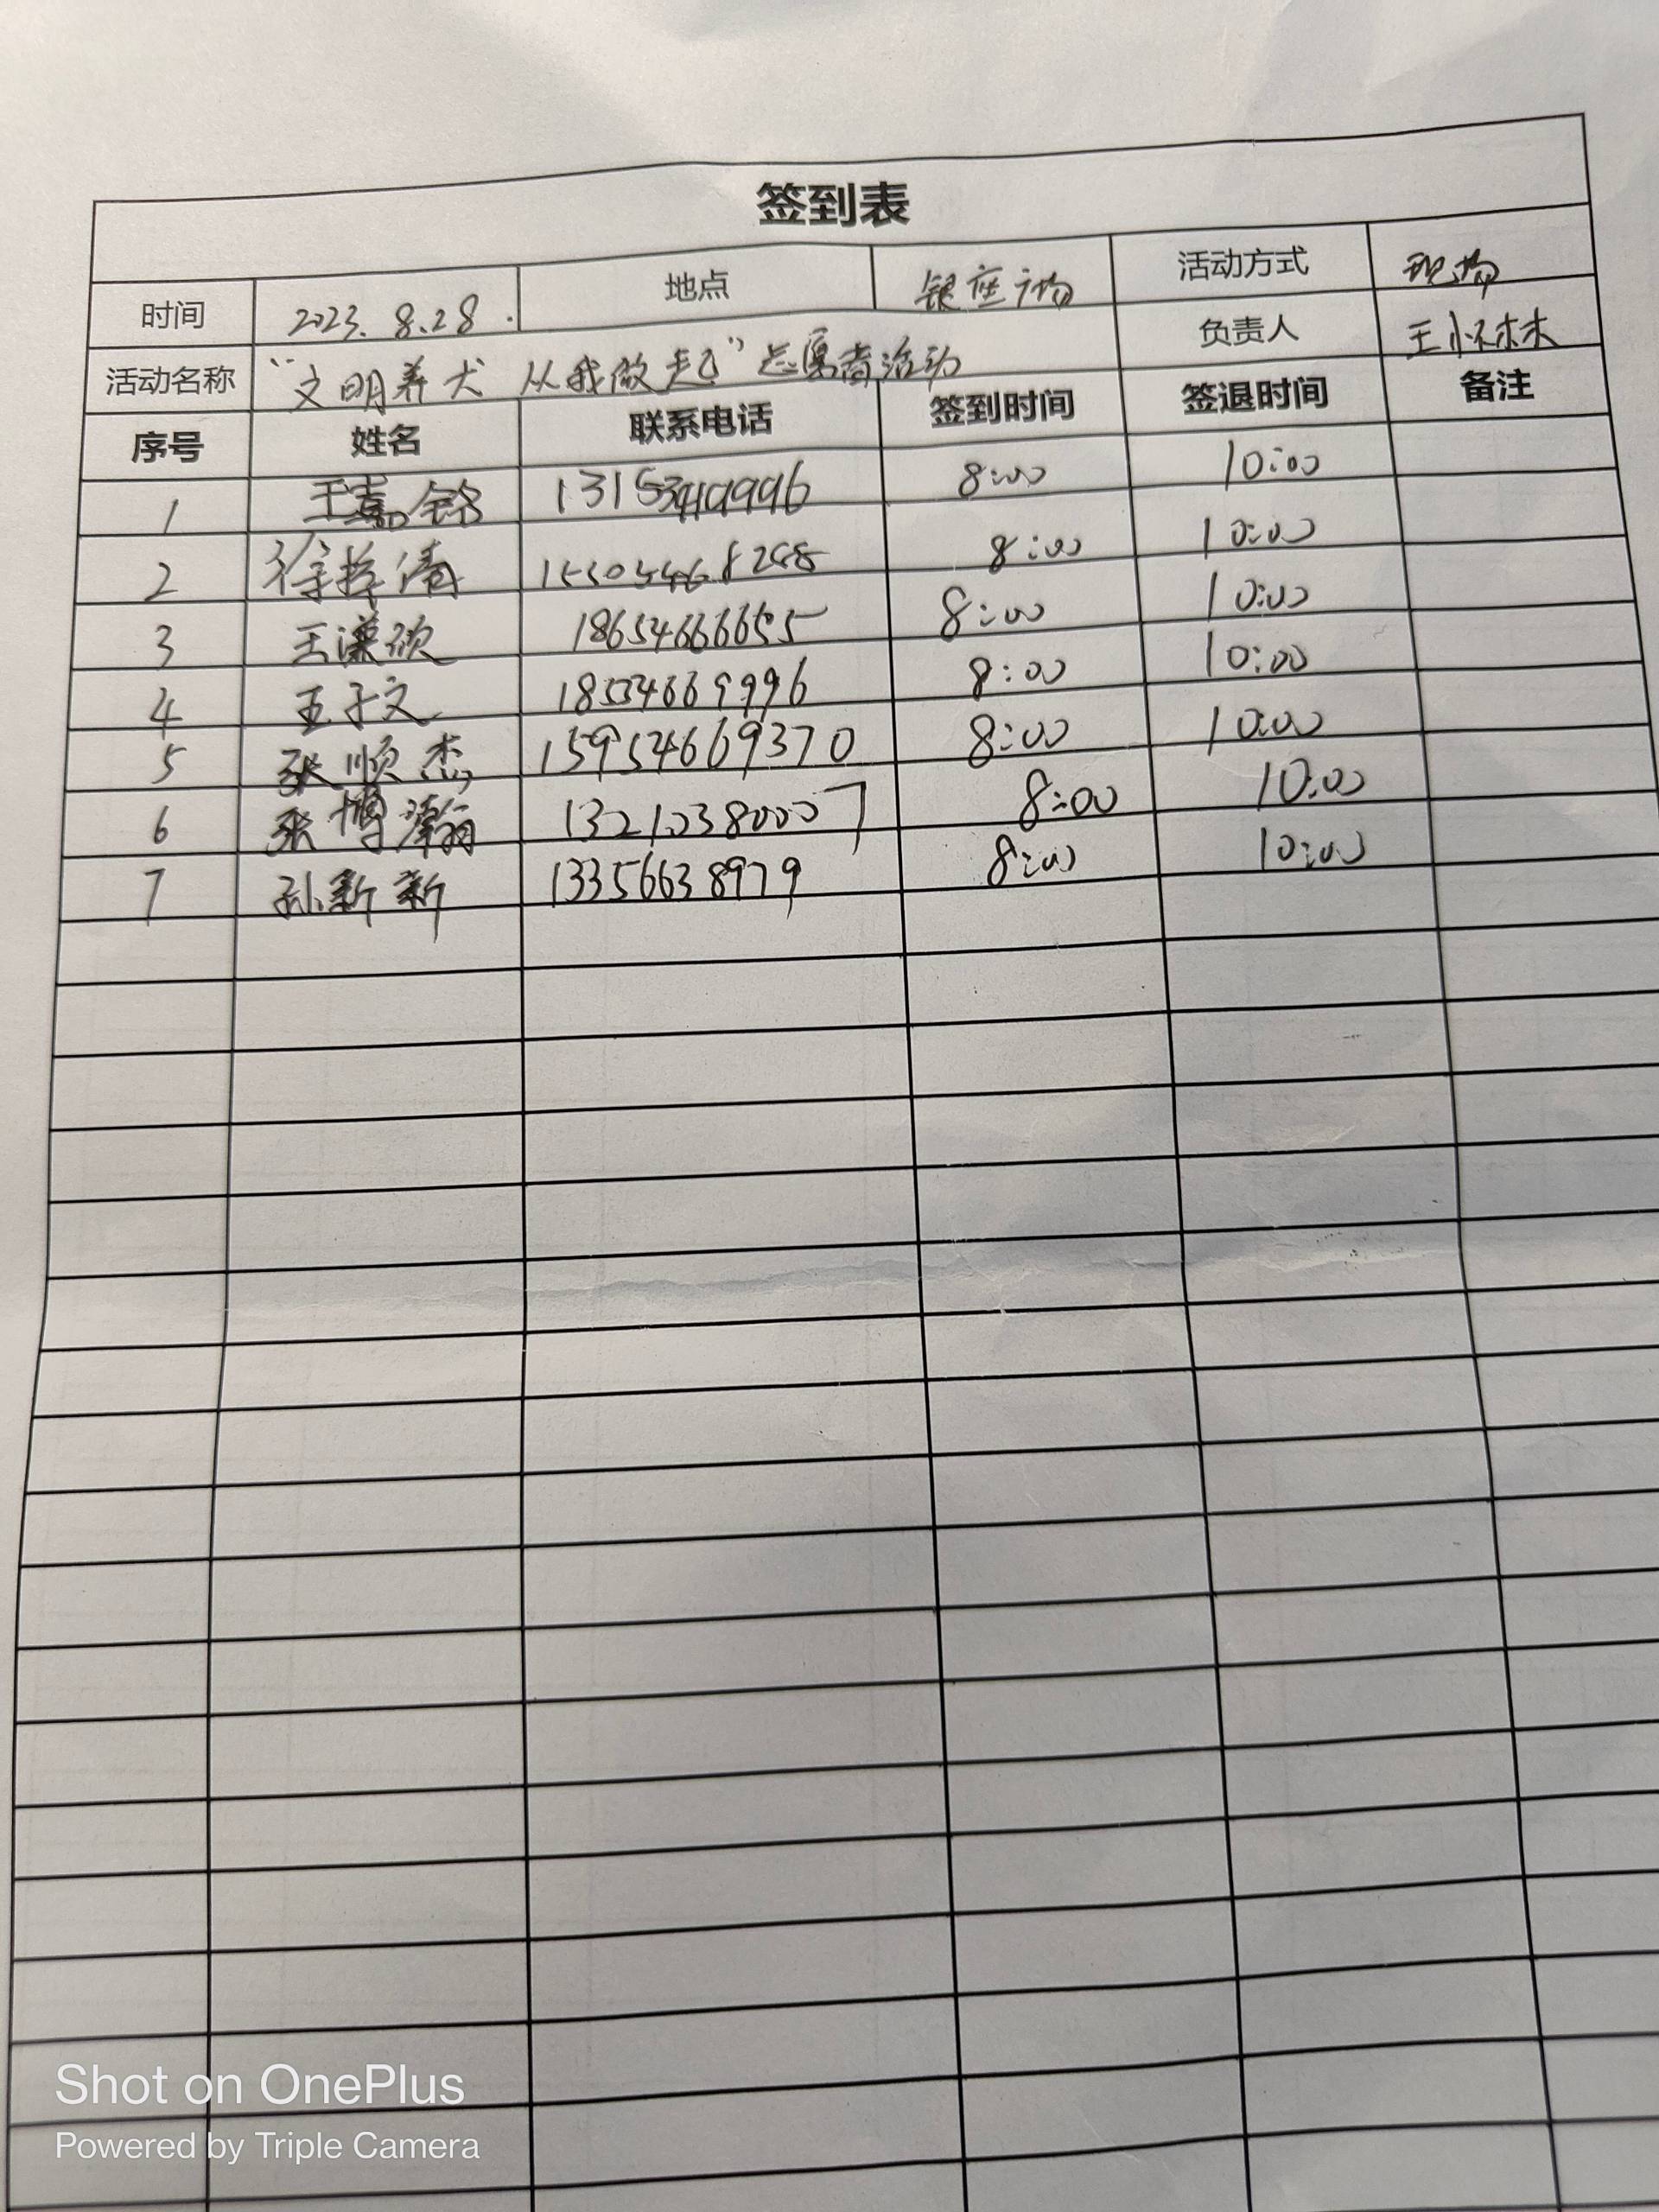 签到表
时间 2023.8.28. 地点 银座广场 活动方式 现场
活动名称 “文明养犬 从我做起”志愿者活动 负责人 王怀林
序号 姓名 联系电话 签到时间 签退时间 备注
1 王嘉铭 8:00 10:00
2 8:00 10:00
3 王潇欣 18654666655 8:00 10:00
4 王子文 18554669996 8:00 10:00
5 张顺杰 15954669370 8:00 10:00
6 张博瀚 13210380007 8:00 10:00
7 孙新新 13356638979 8:00 10:00
Shot on OnePlus
Powered by Triple Camera